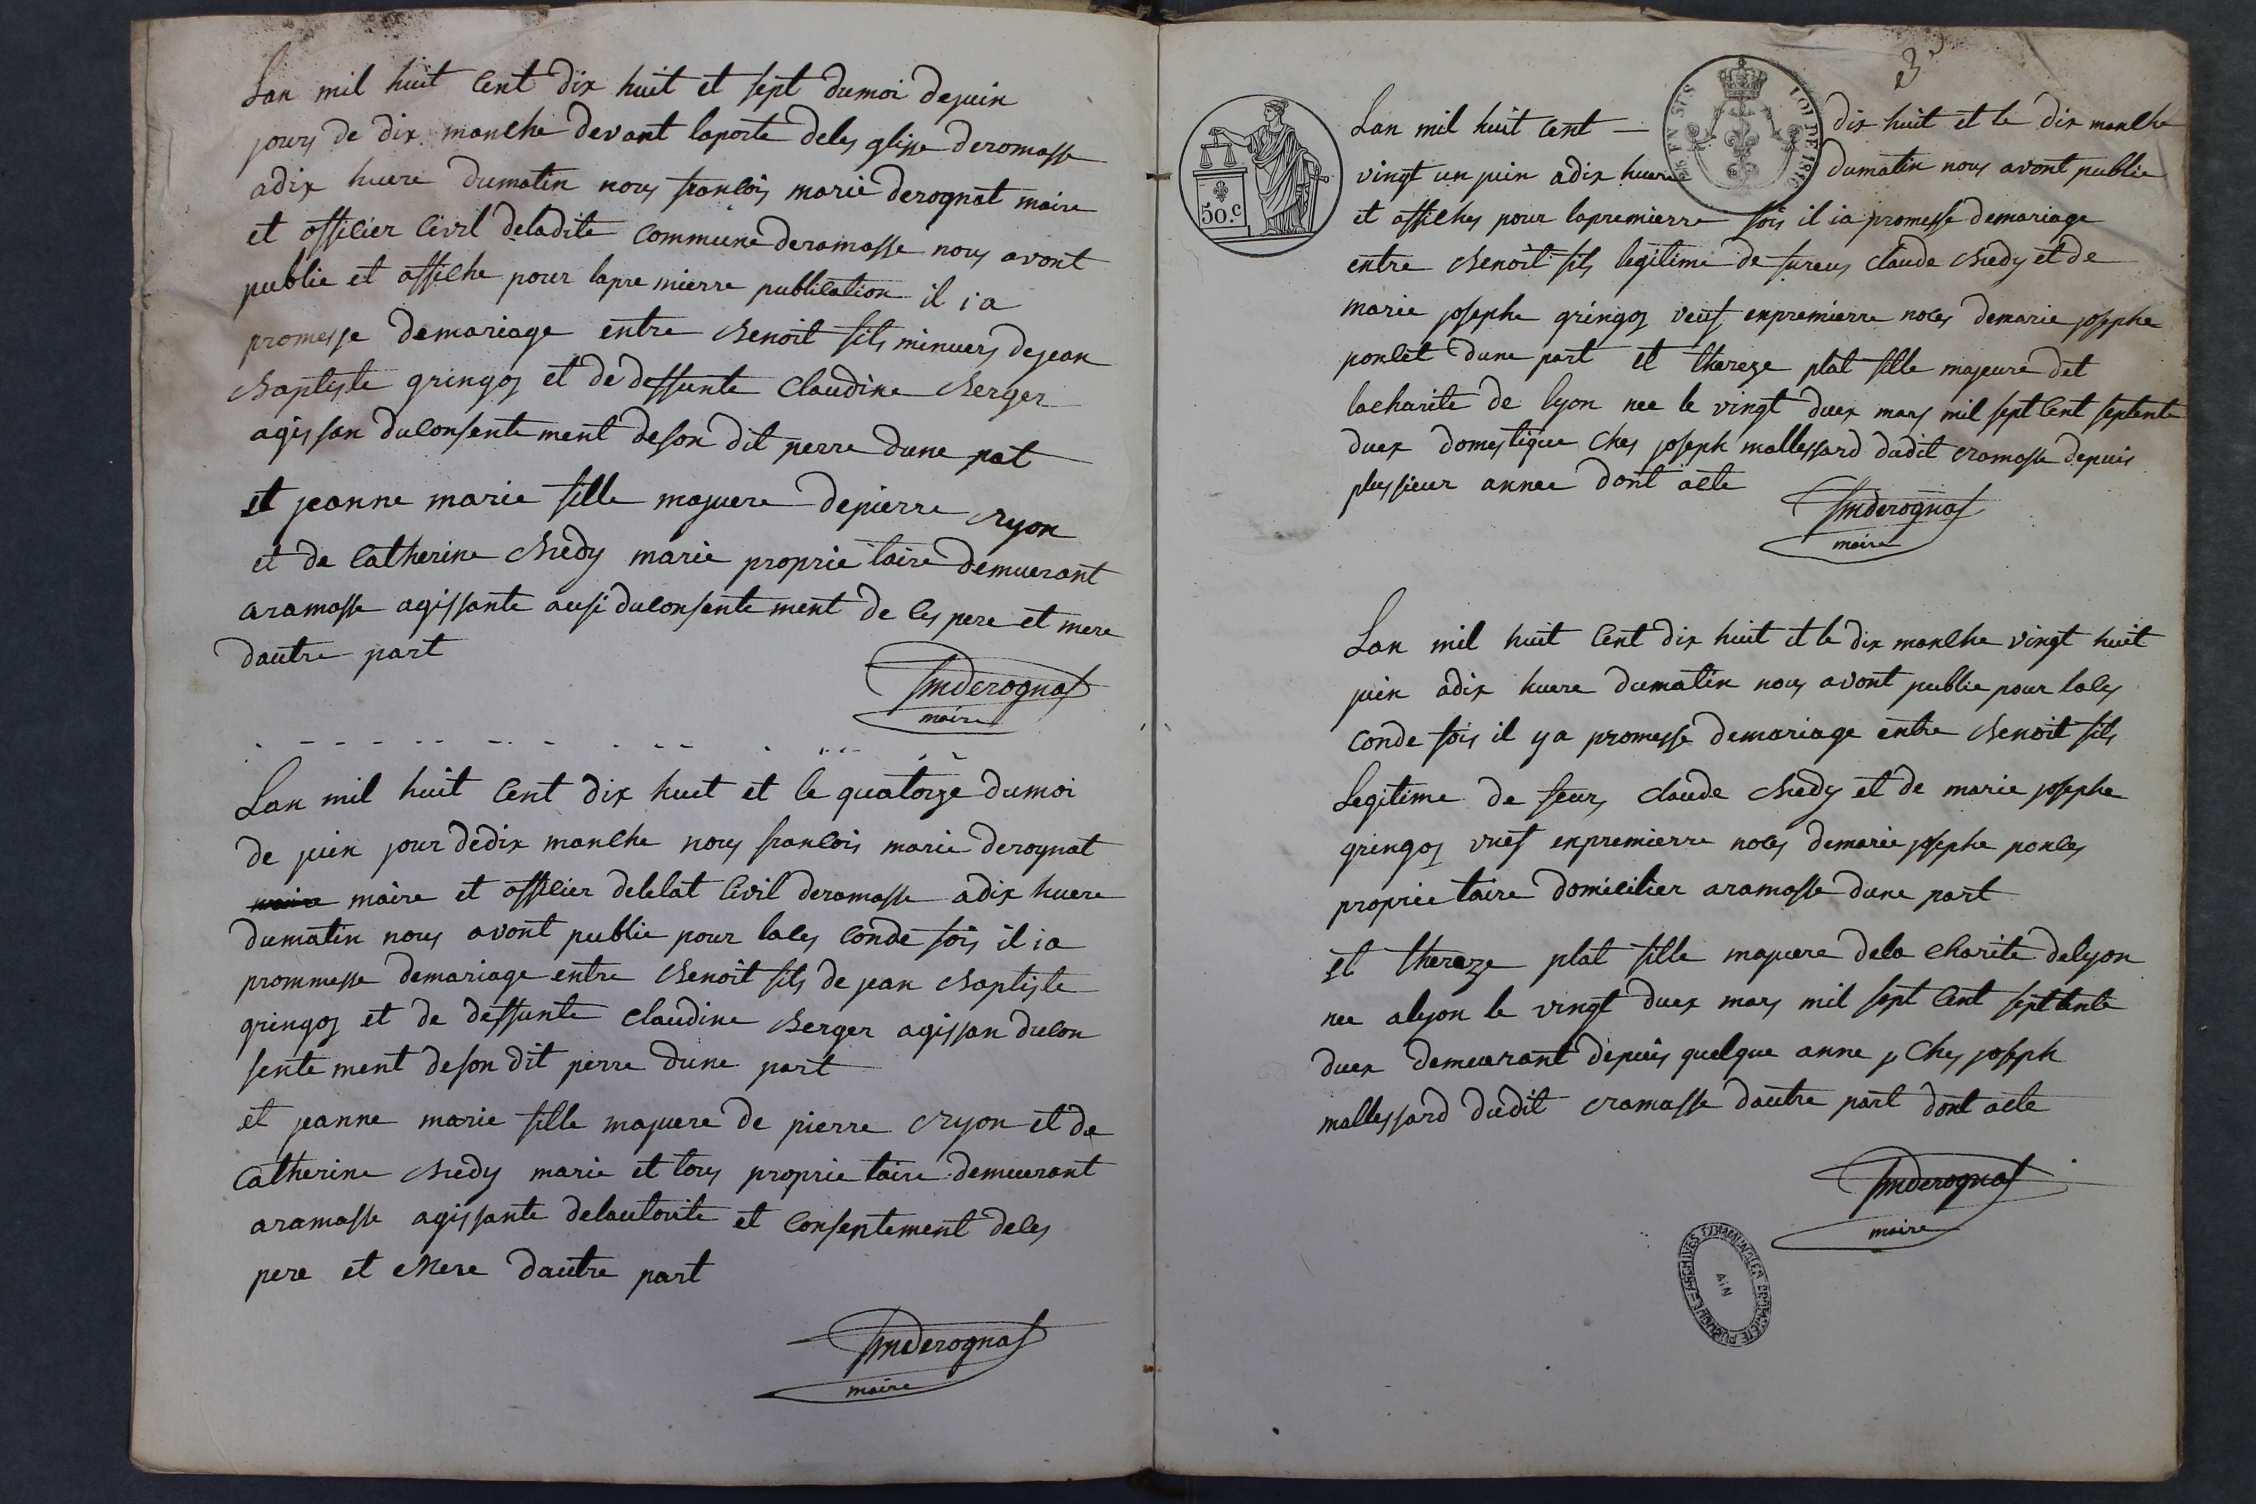 Lan mil huit Cent dix huit et sept dumoi dejuin
jours de dix manche devant laporte deles glisse deromasse
adix huere dumatin nous francois marie derognat maire
et officier Civil deladite Commune deramasse nous avont
publie et affiche pour lapre mierre publication il ia
promesse demariage entre Benoit fils minuers dejean
Baptiste gringoz et de deffunte Claudine Berger
agissan duConsente ment deson dit perre dune pat
et jeanne marie fille majuere depierre Ryon
et de Catherine Bredy marie proprie taire demuerant
aramasse agissante ausi duconsente ment de Ces pere et mere
dautre part
fmderognat
maire
Lan mil huit Cent dix huet et le quatorze dumoi
de juin jour dedix manche nous francois marie derognat
maire et officier deletat Civil deramasse adix huere
dumatin nous avont publie pour laces Conde fois il ia
prommesse demariage entre Benoit fils de jean Baptiste
gringoz et de deffunte Claudine Berger agissan duCon
sente ment deson dit perre dune part
et jeanne marie fille majuere de pierre Ryon et de
Catherine Bredy marie et tous proprie taire demeurant
aramasse agissante delautorite et Consentement deces
pere et Mere dautre part
fmderognat
maire
3
50.c
LOI DE 1816
Lan mil huit Cent — dix huit et le dix manche
vingt un juin adix huere dumatin nous avont publie
et affiches pour lapremierre fois il ia promesse demariage
entre Benoit fils legitime de fureus Claude Bredy et de
marie josephe gringoz veuf enpremierre noces demarie josephe
poncet dune part et thereze plat fille majeure det
lacharite de lyon nee le vingt duex mars mil sept Cent septente
duex domestique Ches joseph mallessard dudit Cramasse depuis
plussieur annee dont acte
fmderognat
maire
Lan mil huit Cent dix huit et le dix manche vingt huit
juin adix huere dumatin nous avont publie pour laces
Conde fois il ya promesse demariage entre Benoit fils
Legitime de feurs Claude Bredy et de marie josephe
gringoz vuef enpremierre noces demarie josephe ponces
proprie taire domicilier aramasse dune part
et thereze plat fille majuere dela Charite delyon
nee alyon le vingt duex mars mil sept Cent septtente
duex demeurant depuis quelque anne s Ches joseph
mallessard dudit Cramasse dautre part dont acte
fmderognat
maire
ARCHIVES COMMUNALES PROPRIETE PUBLIQUE
AIN